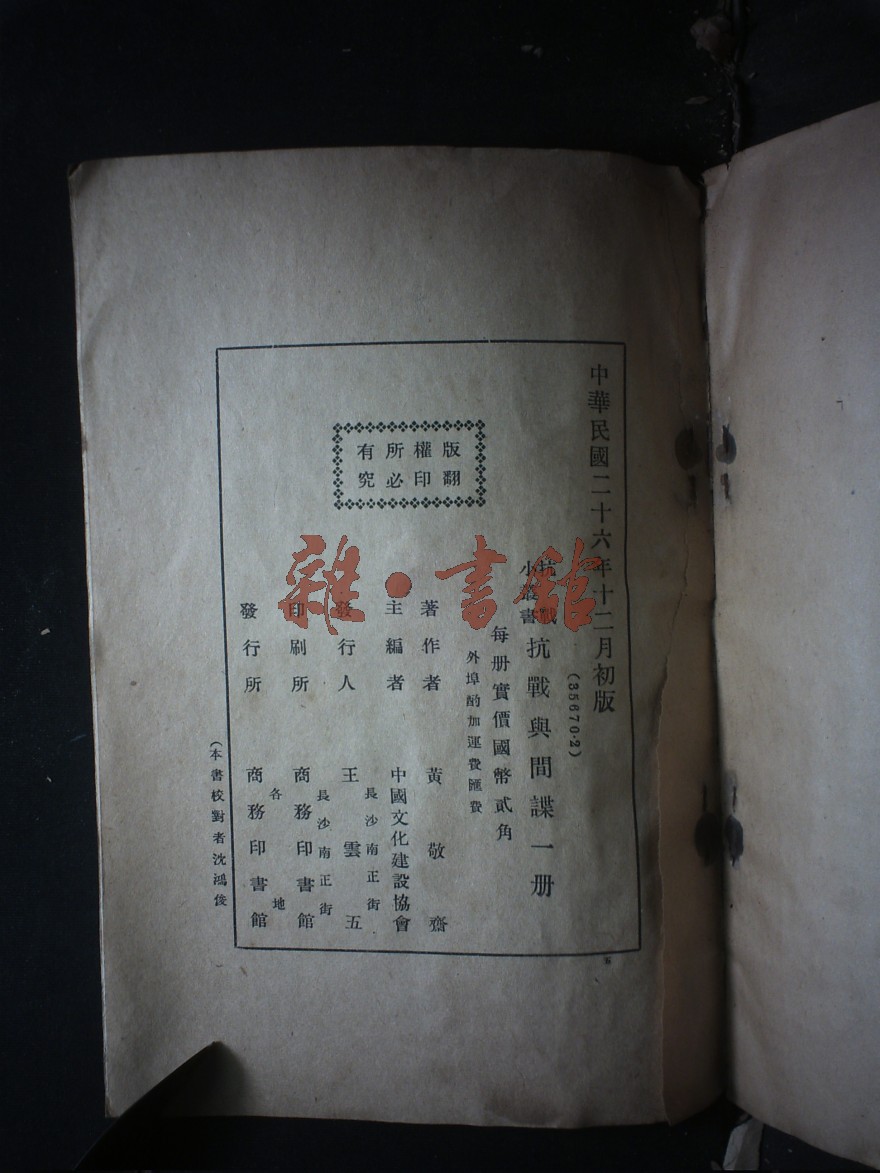 中華民國二十六年十二月初版
(35670·2)
抗戰小叢書 抗戰與間諜一册
每册實價國幣貳角
外埠酌加運費匯費
版權所有
翻印必究
著作者 黃敬齋
主編者 中國文化建設協會
發行人 王雲五
長沙南正街
印刷所 商務印書館
長沙南正街
發行所 商務印書館
各地
(本書校對者沈鴻俊
雜·書館